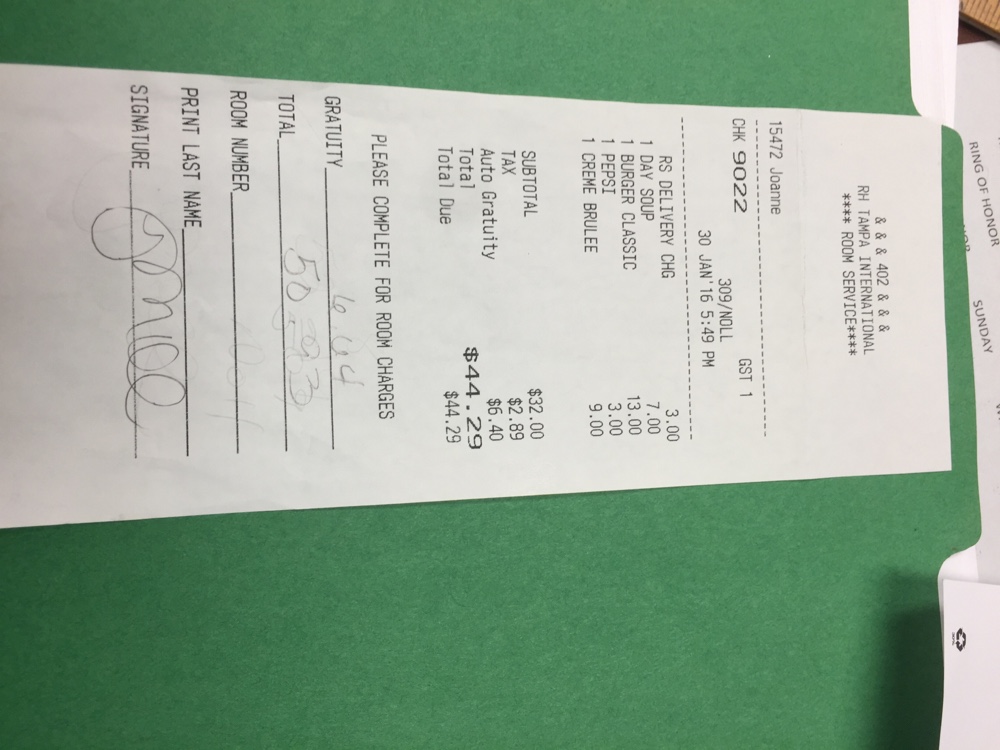 & & & 402 & & &
RH TAMPA INTERNATIONAL
**** ROOM SERVICE****
15472 Joanne
CHK 9022 309/NOLL GST 1
30 JAN'16 5:49 PM
RS DELIVERY CHG 3.00
1 DAY SOUP 7.00
1 BURGER CLASSIC 13.00
1 PEPSI 3.00
1 CREME BRULEE 9.00
SUBTOTAL $32.00
TAX $2.89
Auto Gratuity $6.40
Total $44.29
Total Due $44.29
PLEASE COMPLETE FOR ROOM CHARGES
GRATUITY 6.44
TOTAL
ROOM NUMBER
PRINT LAST NAME
SIGNATURE
RING OF HONOR
SUNDAY